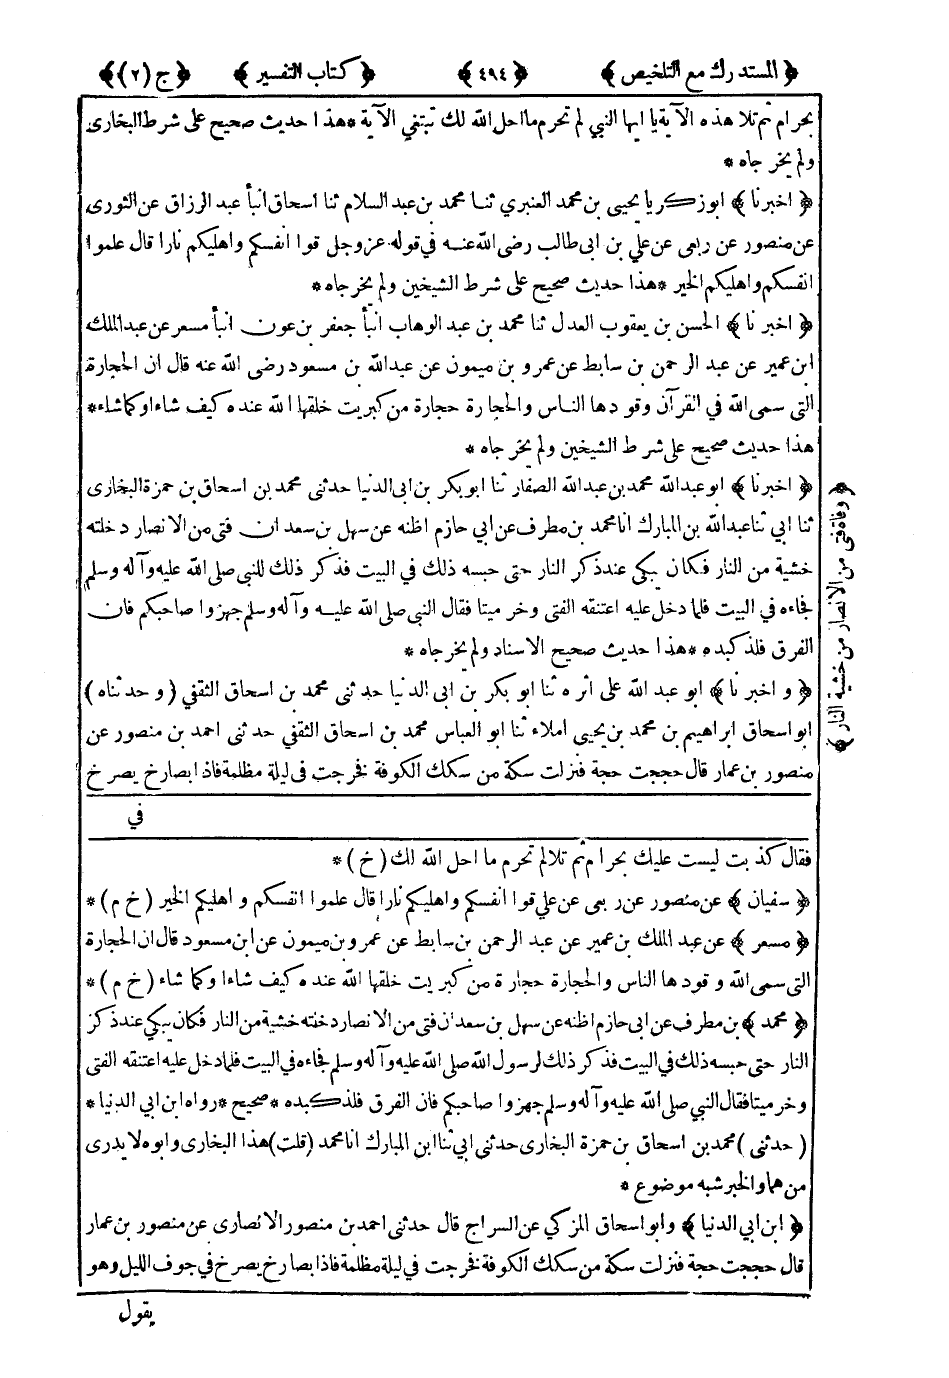 ﴿ المستدرك مع التلخيص ﴾ ﴿ ٤٩٤ ﴾ ﴿ كتاب التفسير ﴾ ﴿ ج (٢) ﴾
بحرام ثم تلا هذه الآية يا ايها النبي لم تحرم ما احل الله لك تبتغي الآية * هذا حديث صحيح على شرط البخاري
ولم يخرجاه *
﴿ اخبرنا ﴾ ابو زكريا يحيى بن محمد العنبري ثنا محمد بن عبد السلام ثنا اسحاق انبأ عبد الرزاق عن الثوري
عن منصور عن ربعي عن علي بن ابى طالب رضى الله عنه في قوله عز وجل قوا انفسكم واهليكم نارا قال علموا
انفسكم واهليكم الخير * هذا حديث صحيح على شرط الشيخين ولم يخرجاه *
﴿ اخبرنا ﴾ الحسن بن يعقوب العدل ثنا محمد بن عبد الوهاب انبأ جعفر بن عون انبأ مسعر عن عبد الملك
ابن عمير عن عبد الرحمن بن سابط عن عمرو بن ميمون عن عبد الله بن مسعود رضى الله عنه قال ان الحجارة
التى سمى الله في القرآن وقودها الناس والحجارة حجارة من كبريت خلقها الله عنده كيف شاء او كما شاء *
هذا حديث صحيح على شرط الشيخين ولم يخرجاه *
﴿ اخبرنا ﴾ ابو عبد الله محمد بن عبد الله الصفار ثنا ابو بكر بن ابى الدنيا حدثنى محمد بن اسحاق بن حمزة البخارى
ثنا ابي ثنا عبد الله بن المبارك انا محمد بن مطرف عن ابي حازم اظنه عن سهل بن سعد ان فتى من الانصار دخلته
خشية من النار فكان يبكي عند ذكر النار حتى حبسه ذلك في البيت فذكر ذلك للنبي صلى الله عليه وآله وسلم
فجاءه في البيت فلما دخل عليه اعتنقه الفتى وخر ميتا فقال النبي صلى الله عليه وآله وسلم جهزوا صاحبكم فان
الفرق فلذ كبده * هذا حديث صحيح الاسناد ولم يخرجاه *
﴿ و اخبرنا ﴾ ابو عبد الله على اثره ثنا ابو بكر بن ابى الدنيا حدثنى محمد بن اسحاق الثقفي ( و حدثناه )
ابو اسحاق ابراهيم بن محمد بن يحيى املاء ثنا ابو العباس محمد بن اسحاق الثقفي حدثنى احمد بن منصور عن
منصور بن عمار قال حججت حجة فنزلت سكة من سكك الكوفة فخرجت فى ليلة مظلمة فاذا بصارخ يصرخ
في
﴿ وفاة فتى من الانصار من خشية النار ﴾
فقال كذبت ليست عليك بحرام ثم تلا لم تحرم ما احل الله لك (خ) *
﴿ سفيان ﴾ عن منصور عن ربعى عن علي قوا انفسكم واهليكم نارا قال علموا انفسكم و اهليكم الخير (خ م) *
﴿ مسعر ﴾ عن عبد الملك بن عمير عن عبد الرحمن بن سابط عن عمرو بن ميمون عن ابن مسعود قال ان الحجارة
التى سمى الله وقودها الناس والحجارة حجارة من كبريت خلقها الله عنده كيف شاء او كما شاء (خ م) *
﴿ محمد ﴾ بن مطرف عن ابى حازم اظنه عن سهل بن سعد ان فتى من الانصار دخلته خشية من النار فكان يبكي عند ذكر
النار حتى حبسه ذلك في البيت فذكر ذلك لرسول الله صلى الله عليه وآله وسلم فجاءه في البيت فلما دخل عليه اعتنقه الفتى
وخر ميتا فقال النبي صلى الله عليه وآله وسلم جهزوا صاحبكم فان الفرق فلذ كبده * صحيح * رواه ابن ابي الدنيا *
( حدثنى ) محمد بن اسحاق بن حمزة البخارى حدثنى ابي ثنا ابن المبارك انا محمد (قلت) هذا البخارى وابوه لا يدرى
من هما والخبر شبه موضوع *
﴿ ابن ابي الدنيا ﴾ وابو اسحاق المزكي عن السراج قال حدثنى احمد بن منصور الانصارى عن منصور بن عمار
قال حججت حجة فنزلت سكة من سكك الكوفة فخرجت في ليلة مظلمة فاذا بصارخ يصرخ في جوف الليل وهو
يقول